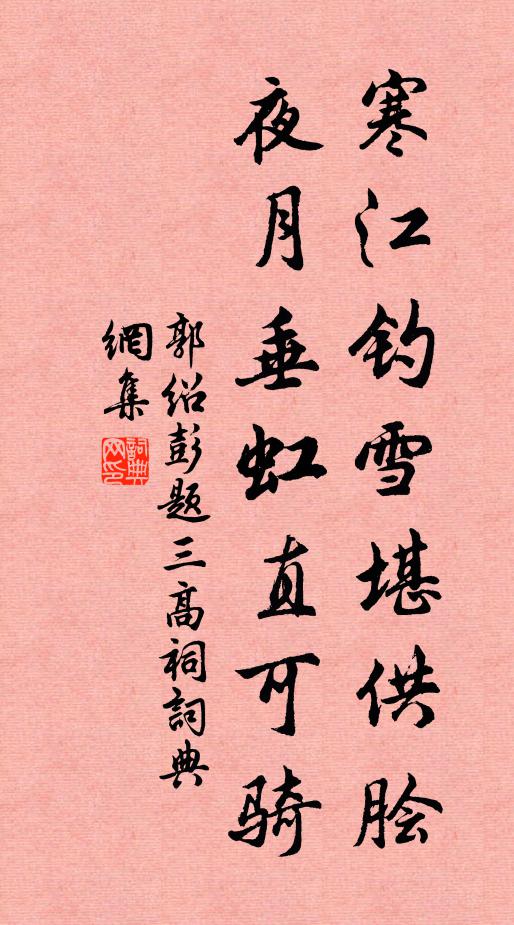 寒江钓雪堪供脍
夜月垂虹直可骑
郭绍彭题三高祠詞典
網集
詞典網印